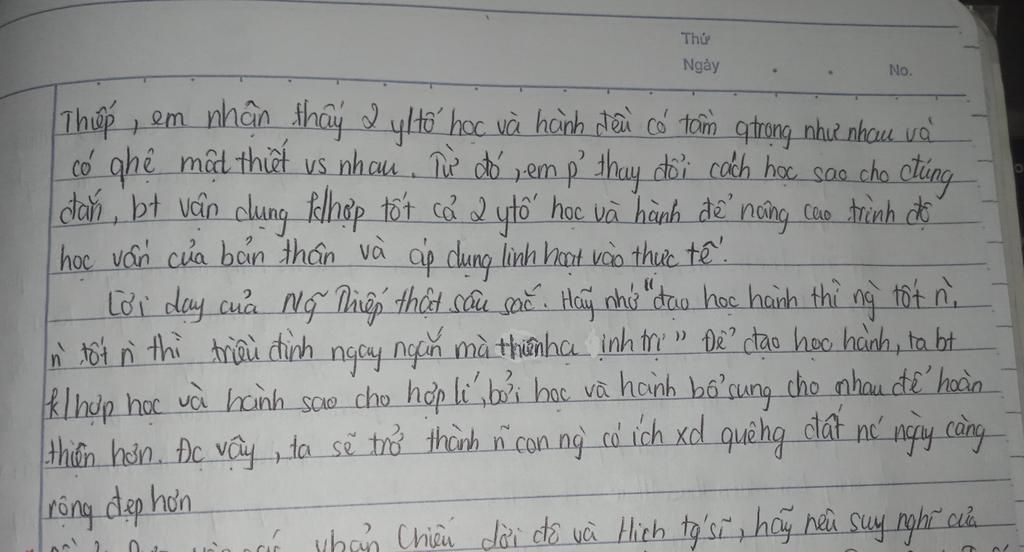 Thứ
Ngày . . No.
Thiếp, em nhận thấy 2 y/tố học và hành đều có tầm qtrọng như nhau và
có qhệ mật thiết vs nhau. Từ đó, em p' thay đổi cách học sao cho đúng
đắn, bt vận dụng k/hợp tốt cả 2 ytố học và hành để nâng cao trình độ
học vấn của bản thân và áp dụng linh hoạt vào thực tế.
Lời dạy của Ng~ Thiếp thật sâu sắc. Hãy nhớ "đạo học hành thì ng` tốt n`,
n` tốt n` thì triều đình ngay ngắn mà thiên hạ ịnh trị" Để đạo học hành, ta bt
k/hợp học và hành sao cho hợp lí, bởi học và hành bổ sung cho nhau để hoàn
thiện hơn. Đc vậy, ta sẽ trở thành n~ con ng` có ích xd quê hg đất nc ngày càng
rộng đẹp hơn
phản Chiếu dời đô và Hịch tg' sĩ, hãy nêu suy nghĩ của